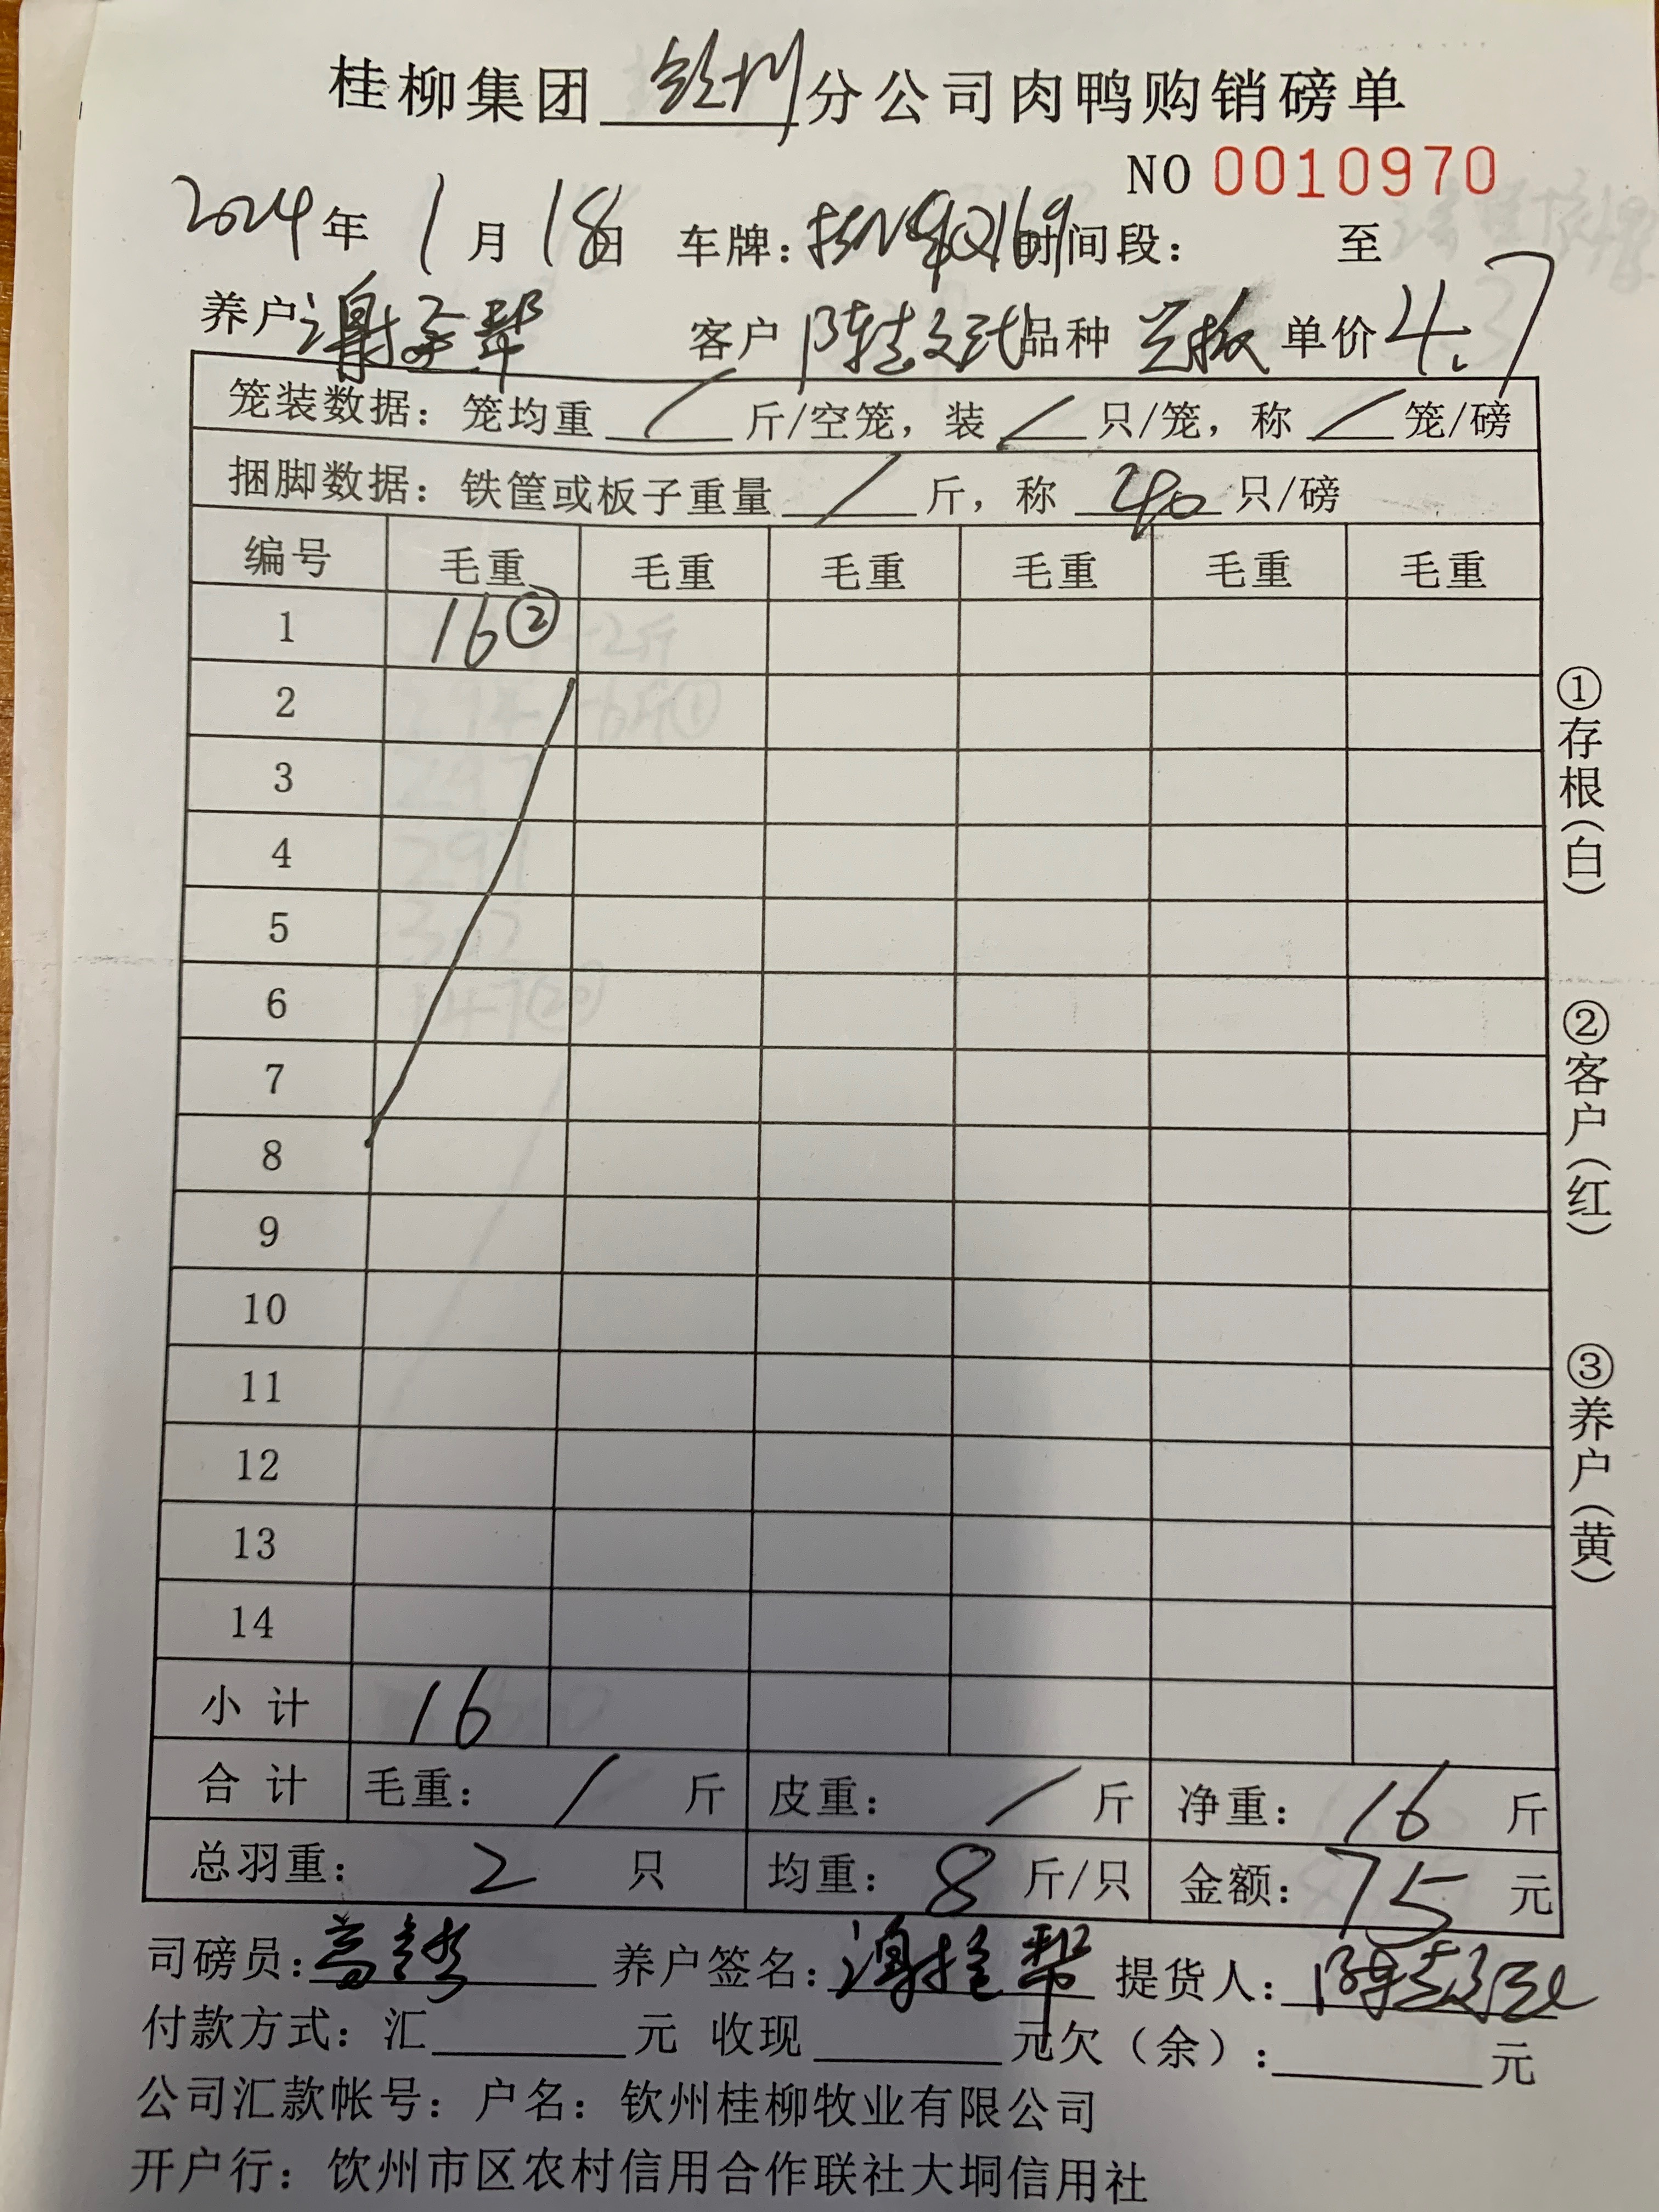 桂柳集团 钦州 分公司肉鸭购销磅单
NO 0010970
2024年 1月 18日 车牌: 时间段: 至
养户 谢 帮 客户 陈志 品种 单价 4.7
笼装数据:笼均重 / 斤/空笼,装 / 只/笼,称 / 笼/磅
捆脚数据:铁筐或板子重量 / 斤,称 40 只/磅
编号 毛重 毛重 毛重 毛重 毛重 毛重
1 16②
2
3
4
5
6
7
8
9
10
11
12
13
14
小计 16
合计 毛重: / 斤 皮重: / 斤 净重: 16 斤
总羽重: 2 只 均重: 8 斤/只 金额: 75 元
司磅员: 养户签名: 谢 帮 提货人: 陈志
付款方式:汇 元 收现 元欠(余): 元
公司汇款帐号:户名:钦州桂柳牧业有限公司
开户行:饮州市区农村信用合作联社大垌信用社
①存根(白)
②客户(红)
③养户(黄)